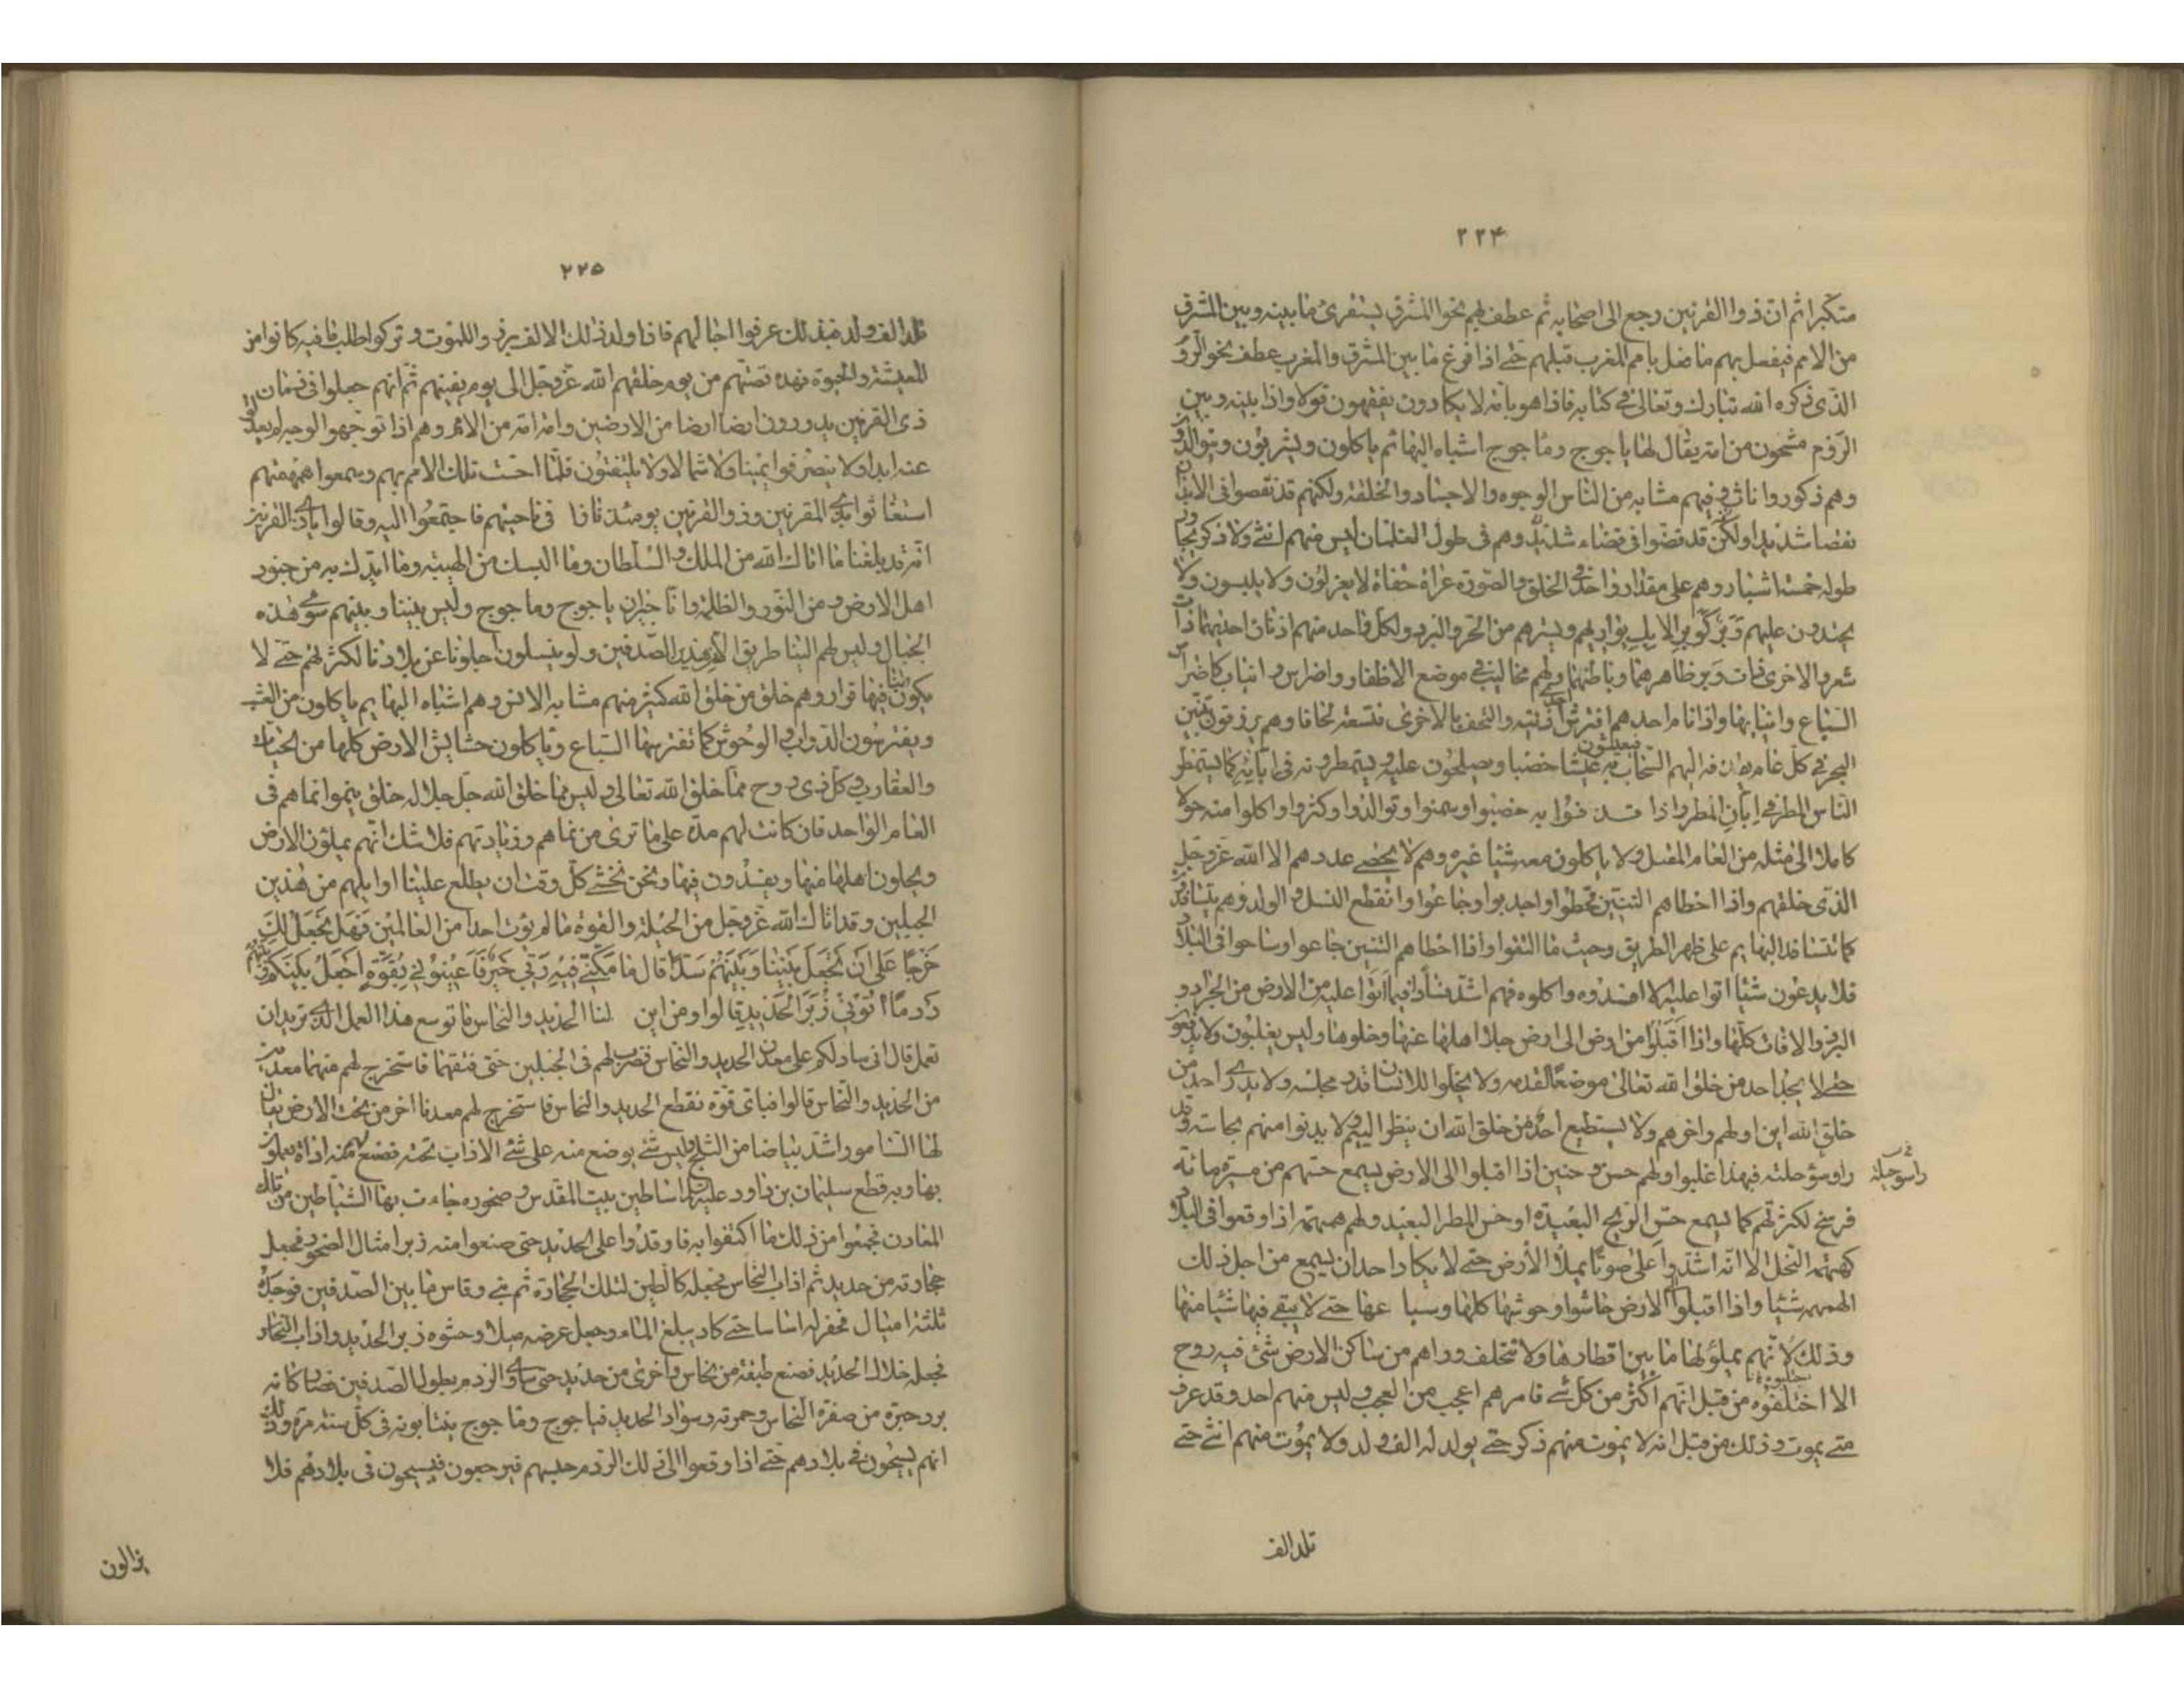 ۲۲۴
متكبرا ثم ان ذوا القرنين رجع الى اصحابه ثم عطف بهم نحو المشرق يستقرئ ما بينه وبين المشرق
من الامم فيفعل بهم ما فعل بامم المغرب قبلهم حتى اذا فرغ ما بين المشرق والمغرب عطف نحو الروم
الذى ذكره الله تبارك وتعالى فى كتابه فاذا هو بامة لا يكادون يفقهون قولا واذا بينه وبين
الروم مشحون من امة يقال لها ياجوج وماجوج اشباه البهائم ياكلون ويشربون ويتوالدون
وهم ذكور واناث وفيهم مشابه من الناس الوجوه والاجساد والخلقة ولكنهم قد نقصوا فى الابدان
نقصا شديدا ولكن قد قضوا فى قضاء شديد وهم فى طول الغلمان ليس منهم انثى ولا ذكر يجاوز
طوله خمسة اشبار وهم على مقدار واحد فى الخلق والصورة عراة حفاة لا يغزلون ولا يلبسون ولا
يحتذون عليهم وبر كوبر الابل يواريهم ويسترهم من الحر والبرد ولكل واحد منهم اذنان احديهما ذات
شعر والاخرى ذات وبر ظاهرهما وباطنهما ولهم مخاليب فى موضع الاظفار واضراس وانياب كاضراس
السباع وانيابها واذا نام احدهم افترش احدى اذنيه والتحف بالاخرى فتسعه لحافا وهم يرزقون تنين
البحر فى كل عام يقذفه اليهم السحاب فيعيشون به عيشا خصبا ويصلحون عليه ويستمطرونه فى ابانه كما يستمطر
الناس المطر فى ابان المطر واذا قذفوا به خصبوا وسمنوا وتوالدوا وكثروا واكلوا منه حولا
كاملا الى مثله من العام المقبل ولا ياكلون معه شيئا غيره وهم لا يحصى عددهم الا الله عز وجل
الذى خلقهم واذا اخطاهم التنين قحطوا واجدبوا وجاعوا وانقطع النسل والولد وهم يتسافدون
كما تتسافد البهايم على ظهر الطريق وحيث ما التقوا واذا اخطاهم التنين جاعوا وساحوا فى البلاد
فلا يدعون شيئا اتوا عليه الا افسدوه واكلوه فهم اشد فسادا فيما اتوا عليه من الارض من الجراد و
البرد والافات كلها واذا اقبلوا من ارض الى ارض جلا اهلها عنها وخلوها وليس يغلبون ولا يدفعون
حتى لا يجد احد من خلق الله تعالى موضعا لقدمه ولا يخلوا للانسان قدر مجلسه ولا يدرى احد من
خلق الله اين اولهم واخرهم ولا يستطيع احد من خلق الله ان ينظر اليهم ولا يدنوا منهم نجاسة وقذرا
وسوء حلته فبهذا غلبوا ولهم حس وحنين اذا اقبلوا الى الارض يسمع حسهم من مسيرة مائة
فرسخ لكثرتهم كما يسمع حس الريح البعيدة او حس المطر البعيد ولهم همهمة اذا وقعوا فى البلاد
كهمهمة النحل الا انه اشد واعلى صوتا يملأ الأرض حتى لا يكاد احد ان يسمع من اجل ذلك
الهمهمه شيئا واذا اقبلوا الى الارض حاشوا وحوشها كلها وسباعها حتى لا يبقى فيها شيئا منها
وذلك لانهم يملؤنها ما بين اقطارها ولا تتخلف وراهم من ساكن الارض شئ فيه روح
الا اختلفوه من قبل انهم اكثر من كل شئ فامرهم اعجب من العجب وليس منهم احد وقد عرف
متى يموت وذلك من قبل انه لا يموت منهم ذكر حتى يولد له الف ولد ولا يموت منهم انثى حتى
تلد الف
۲۲۵
تلد الف ولد فبذلك عرفوا اجالهم فاذا ولد ذلك الالف برزوا للموت وتركوا طلب ما فيه كانوا من
المعيشة والحيوة فهذه قصتهم من يوم خلقهم الله عز وجل الى يوم يفنيهم ثم انهم جعلوا فى زمان
ذى القرنين يدورون ارضا ارضا من الارضين وامة امة من الامم وهم اذا توجهوا لوجه لم يعدلوا
عنه ابدا ولا ينصرفوا يمينا ولا شمالا ولا يلتفتون فلما احست تلك الامم بهم وسمعوا همهمتهم
استغاثوا بذى القرنين وذو القرنين يومئذ نازلا فى ناحيتهم فاجتمعوا اليه وقالوا ياذى القرنين
انه قد بلغنا ما اتاك الله من الملك والسلطان وما البسك من الهيبة وما ايدك به من جنود
اهل الارض ومن النور والظلمة وانا جيران ياجوج وماجوج وليس بيننا وبينهم سوى هذه
الجبال وليس لهم الينا طريق الا هذين الصدفين ولو ينسلون اجلونا عن بلادنا لكثرتهم حتى لا
يكون لنا فيها قرار وهم خلق من خلق الله كثير منهم مشابه الانس وهم اشباه البهايم ياكلون من العشب
ويفترسون الدواب والوحوش كما تفترسها السباع وياكلون حشايش الارض كلها من الحيات
والعقارب وكل ذى روح مما خلق الله تعالى وليس مما خلق الله جل جلاله خلق ينموا نماهم فى
العام الواحد فان كانت لهم مدة على ما ترى من نماهم وزيادتهم فلا شك انهم يملئون الارض
ويجلون اهلها منها ويفسدون فيها ونحن نخشى كل وقت ان يطلع علينا اوايلهم من هذين
الجبلين وقد اتاك الله عز وجل من الحيلة والقوة ما لم يؤت احدا من العالمين فهل نجعل لك
خرجا على ان تجعل بيننا وبينهم سدا قال ما مكنى فيه ربى خير فاعينونى بقوة اجعل بينكم وبينهم
ردما اتونى زبر الحديد قالوا ومن اين لنا الحديد والنحاس ما توسع هذا العمل الذى تريد ان
تعمل قال انى سادلكم على معدن الحديد والنحاس فضرب لهم فى الجبلين حتى فتقهما فاستخرج لهم منهما معدنين
من الحديد والنحاس قالوا فباى قوة نقطع الحديد والنحاس فاستخرج لهم معدنا اخر من تحت الارض يقال
لها السامور اشد بياضا من الثلج وليس شئ يوضع منه على شئ الا ذاب تحته فصنع لهم منه اداة يعملون
بها وبه قطع سليمان بن داود عليهما اساطين بيت المقدس وصخوره جاءت بها الشياطين من تلك
المعادن فجمعوا من ذلك ما اكتفوا به فاوقدوا على الحديد حتى صنعوا منه زبرا امثال الصخور فجعل
حجارته من حديد ثم اذاب النحاس فجعله كالطين لتلك الحجارة ثم بنى وقاس ما بين الصدفين فوجده
ثلثة اميال فحفر له اساسا حتى كاد يبلغ الماء وجعل عرضه ميلا وحشوه زبر الحديد واذاب النحاس
فجعله خلال الحديد فصنع طبقة من نحاس واخرى من حديد حتى ساوى الردم بطول الصدفين فصار كانه
برد حبرة من صفرة النحاس وحمرته وسواد الحديد فياجوج وماجوج ينتابونه فى كل سنة مرة وذلك
انهم يسيحون فى بلادهم حتى اذا وقعوا الى ذلك الردم حبسهم فيرجعون فيسيحون فى بلادهم فلا
يزالون